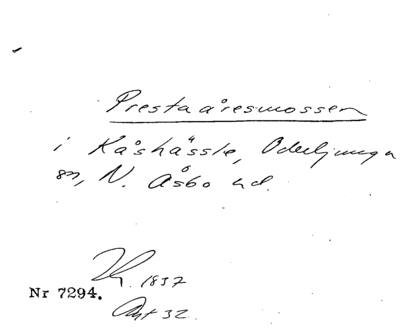 Prestaåresmossen
i Kåshässle, Oderljunga
sn, N. Åsbo hd.
1837
Nr 7294.
32